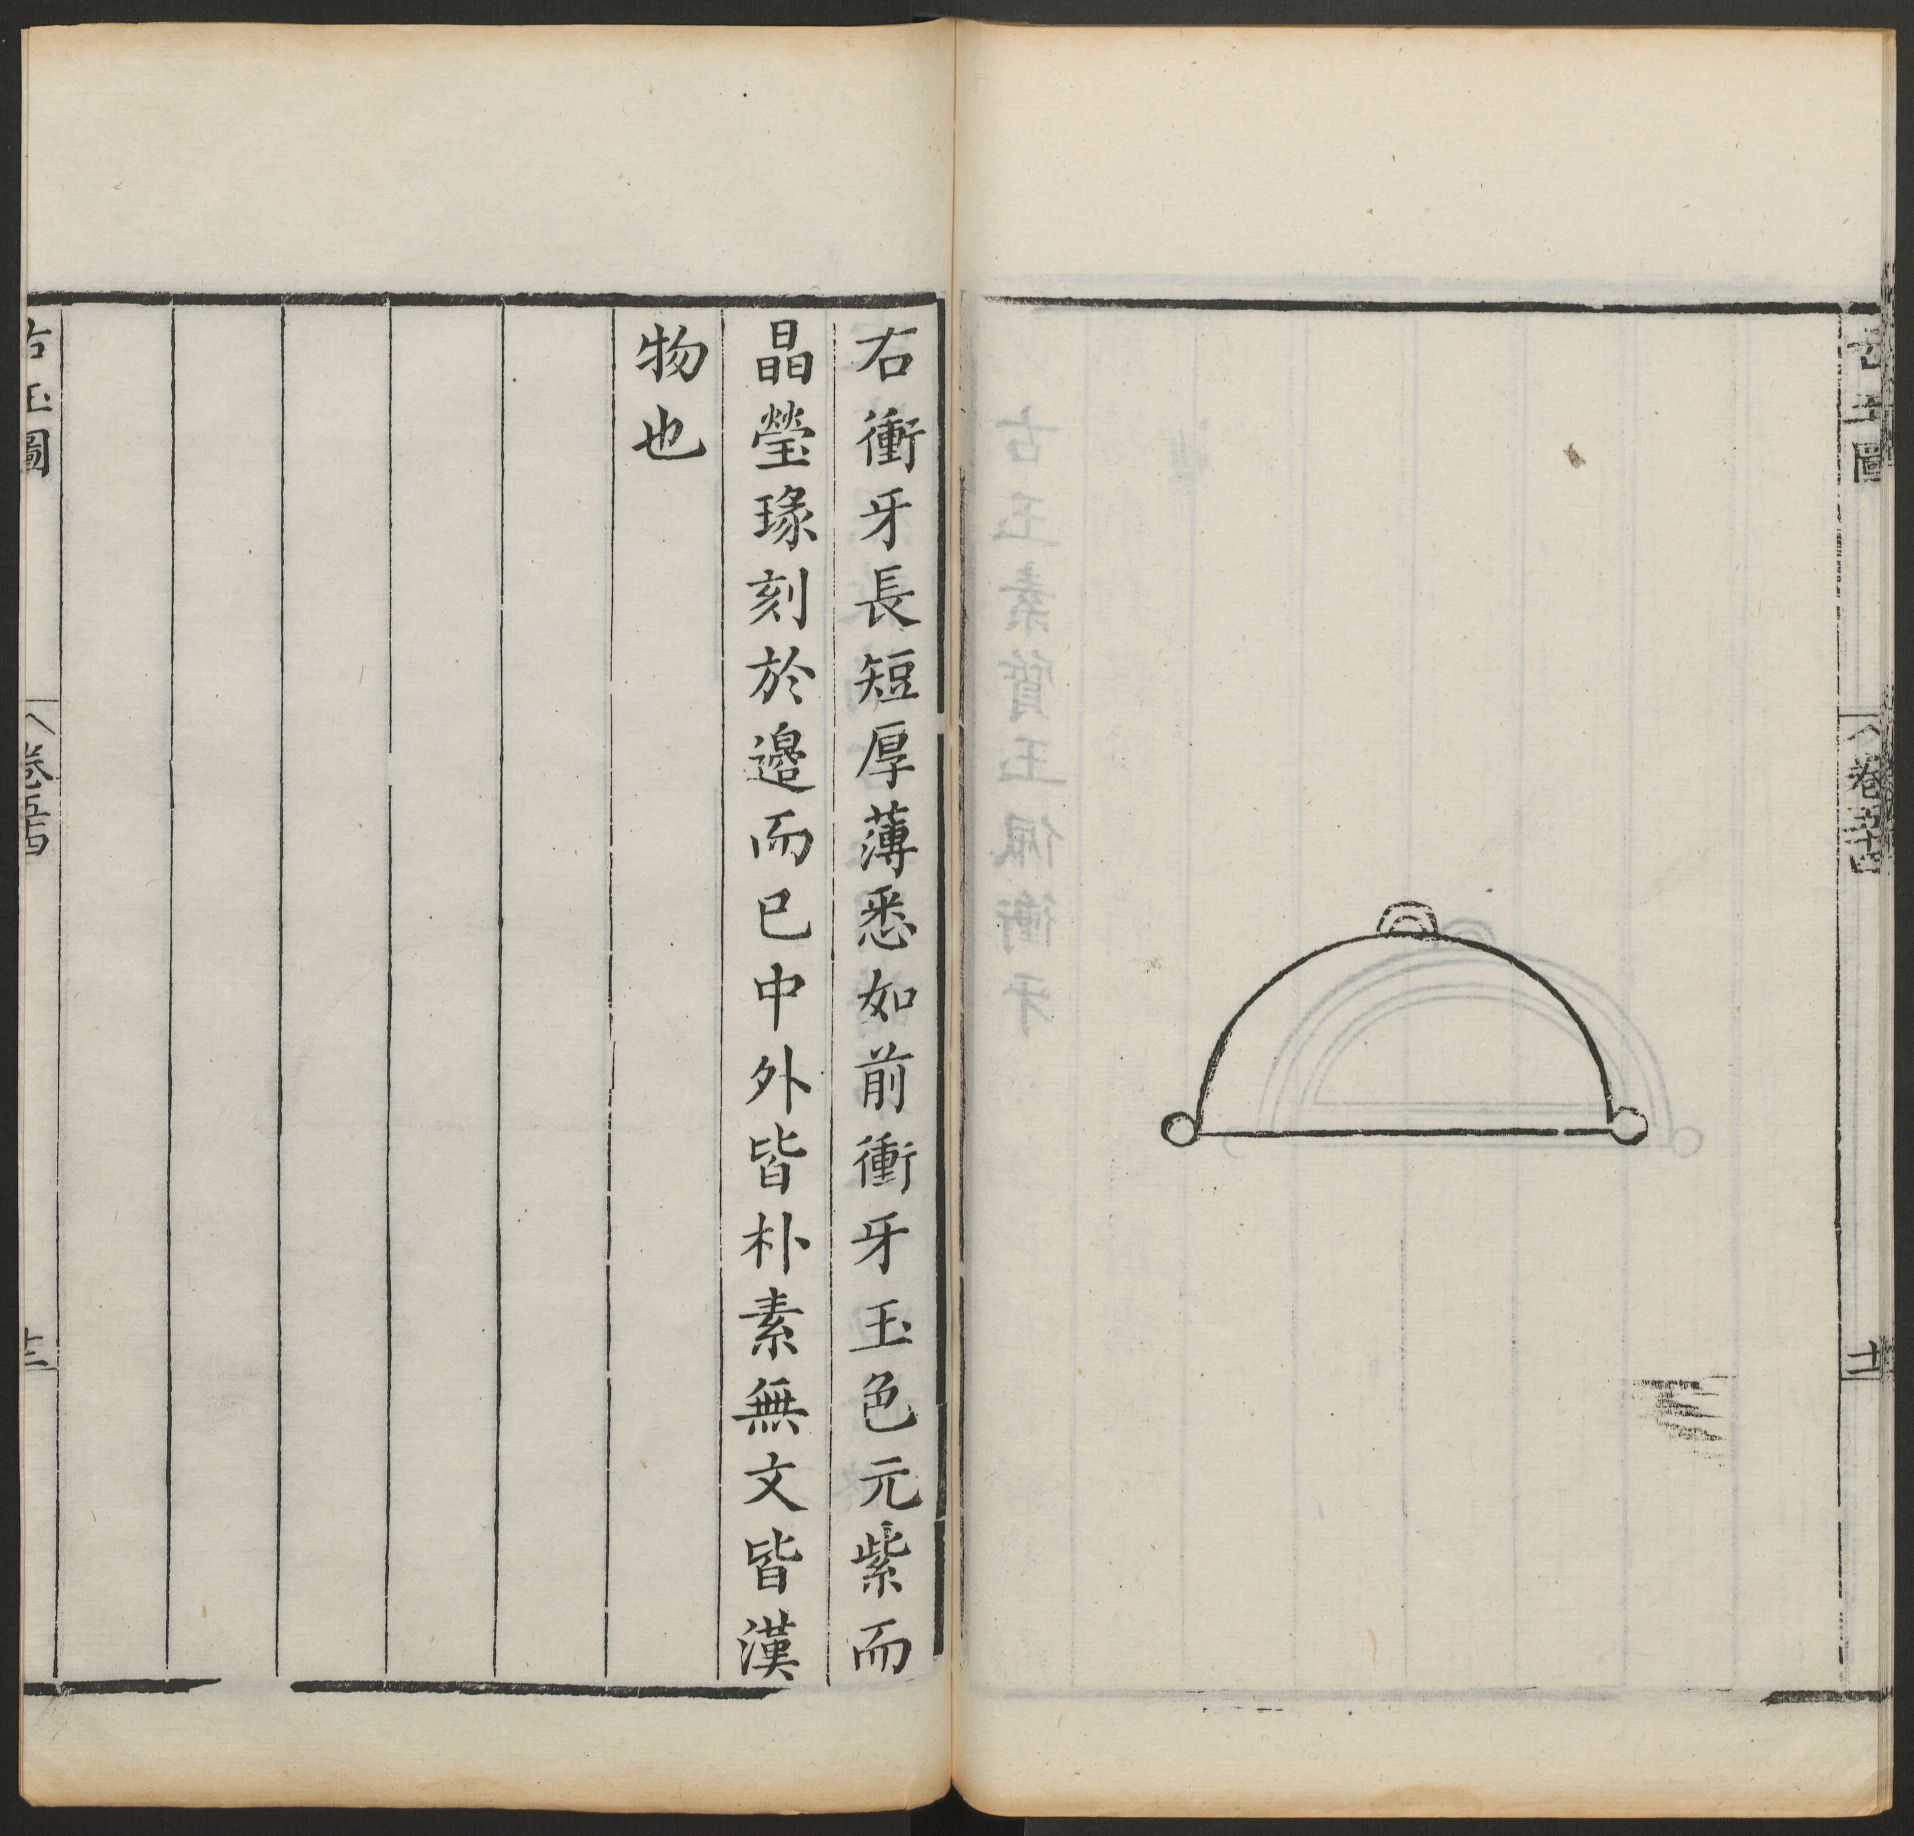 古玉圖
卷五十四
十一
右衝牙長短厚薄悉如前衝牙玉色元紫而
晶瑩瑑刻於邉而已中外皆朴素無文皆漢
物也
古玉圖
卷五十四